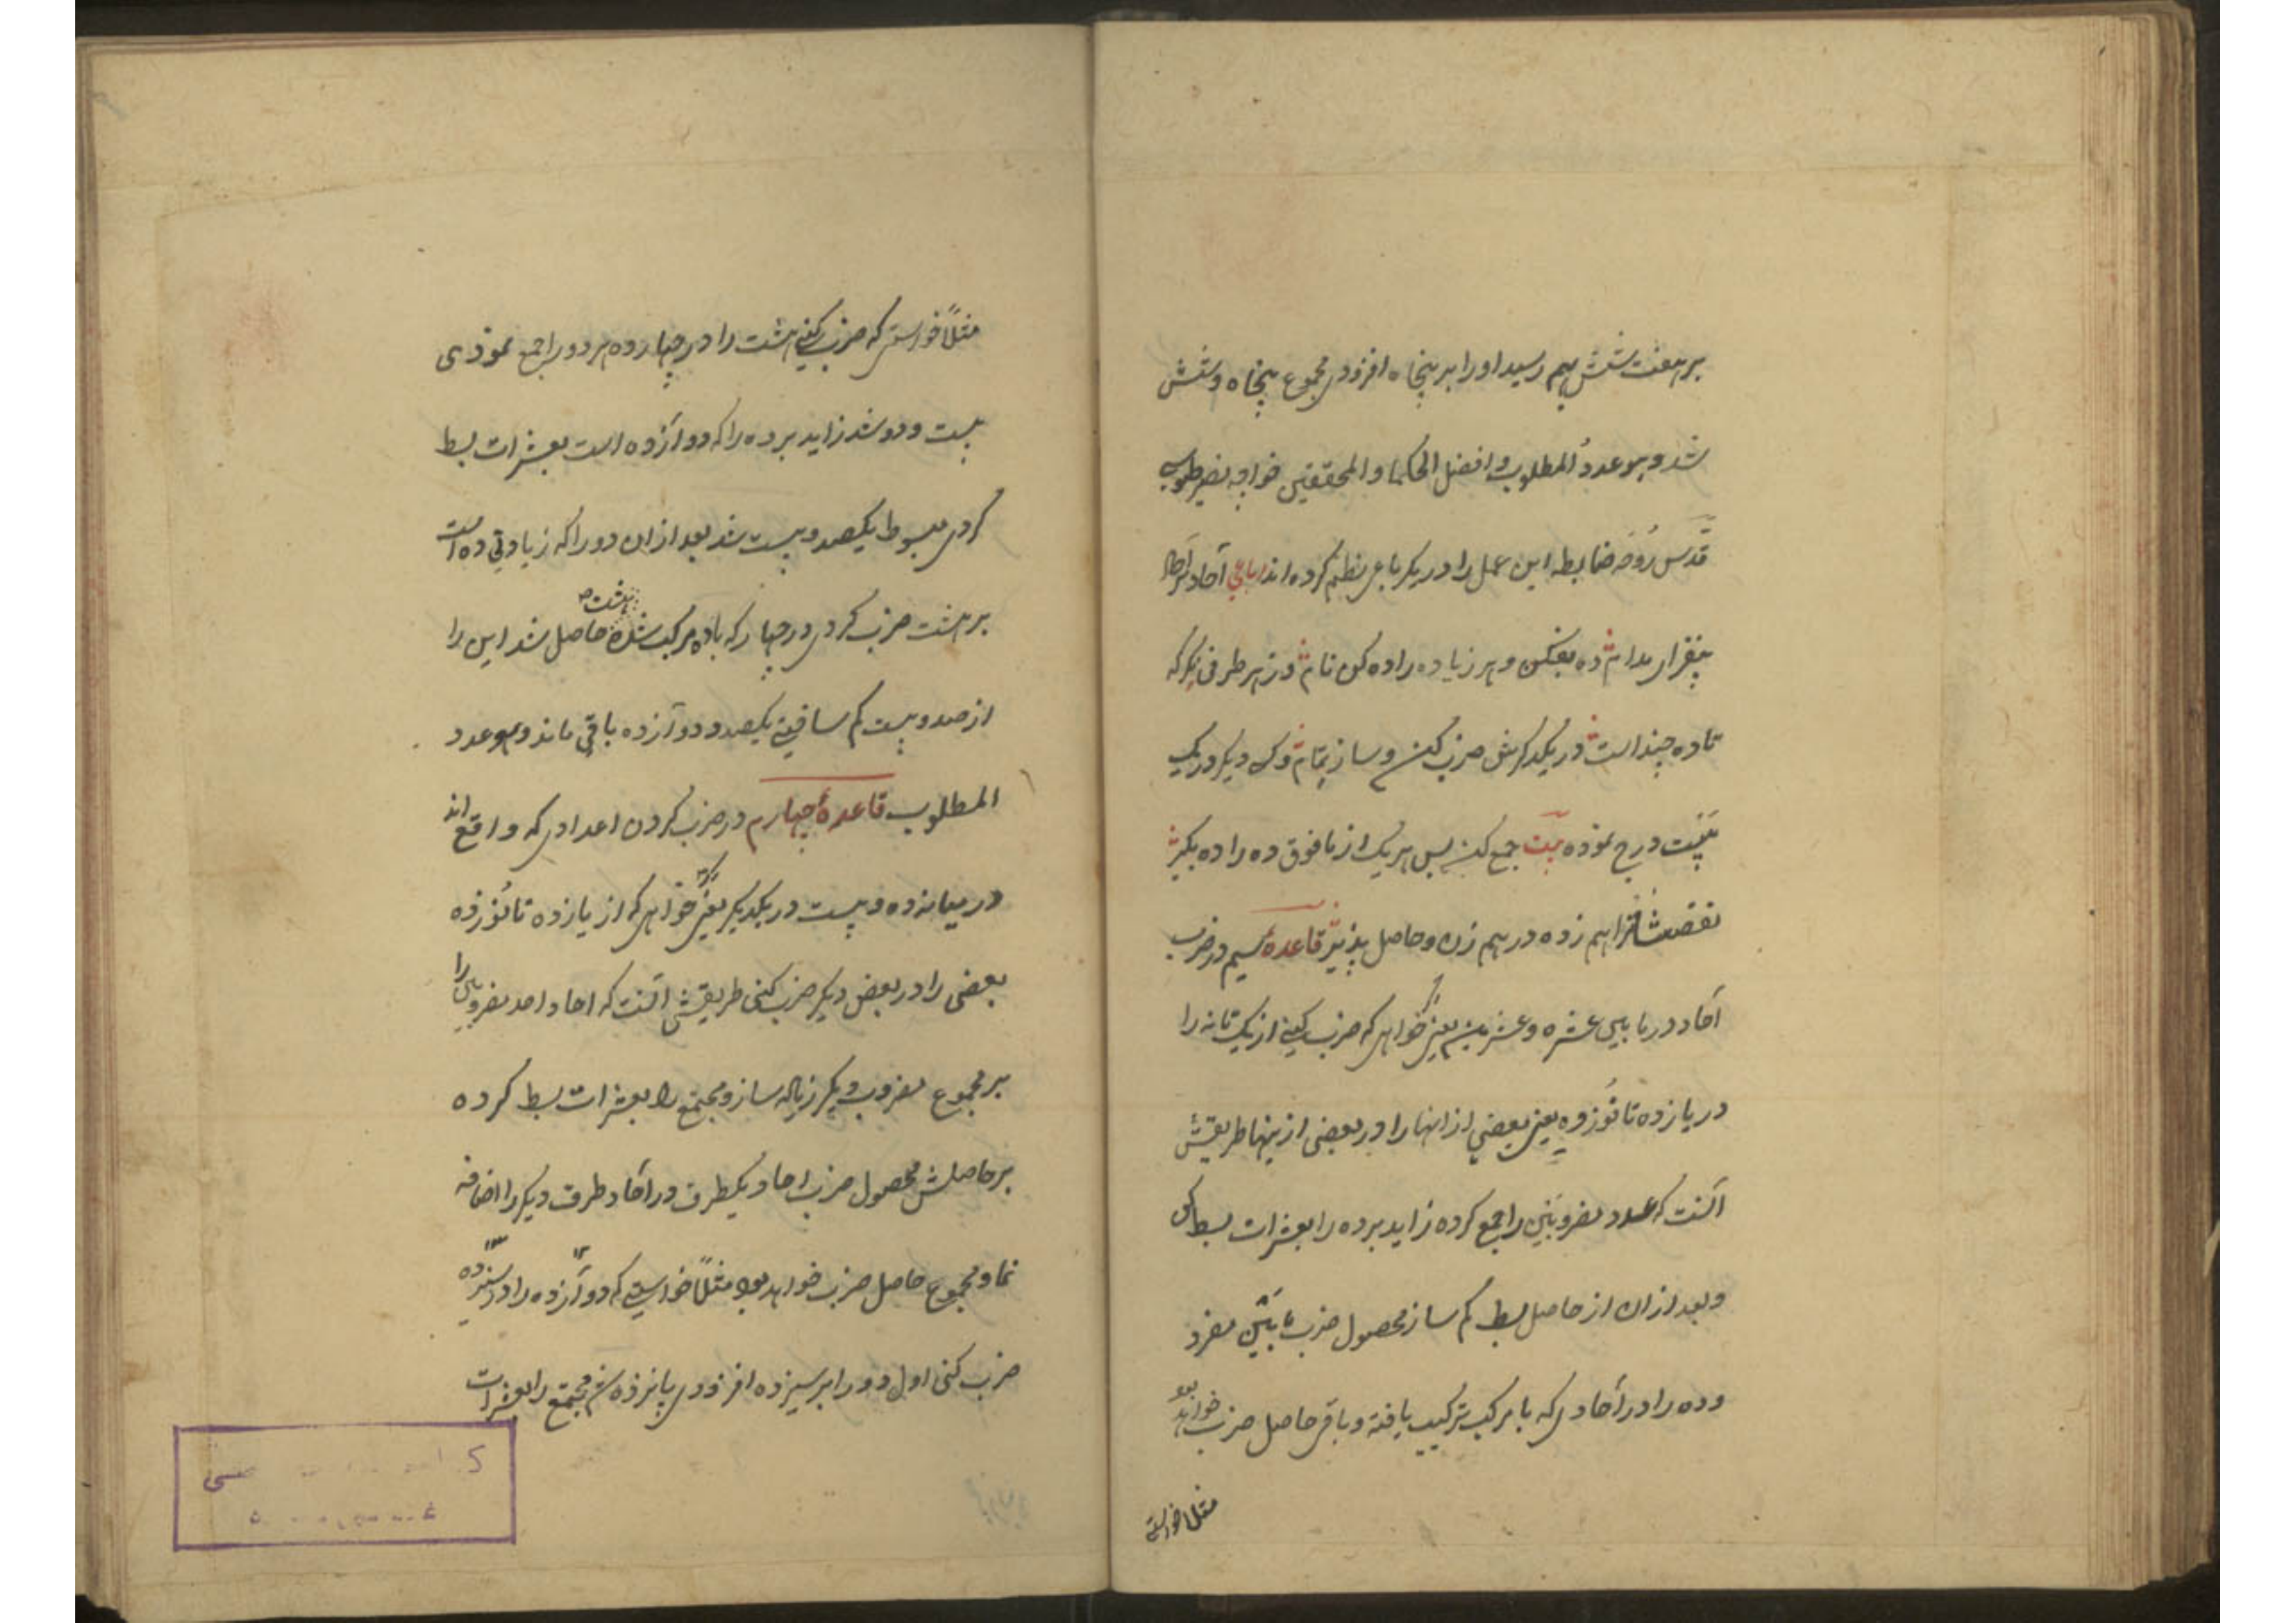 بر هفت شش بهم رسید او را بر پنجاه افزودی مجموع پنجاه و شش
شد و هو عدد المطلوب و افضل الحکما و المحققین خواجه نصیر طوسی
قدس روحه ضابطه این عمل را در یک رباعی نظم کرده اند رباعی آحاد
بیفزای مدامش ده بفکن و هر زیاده را ده کن نامش وز هر طرفی نکر که
تا ده چند است در یکدکرش ضرب کن و ساز تمامش و دیکر در یک
بیت درج نموده بیت جمع کن پس هر یک از مافوق ده را ده بکیر
نقصشان را هم زده در هم زن و حاصل پذیر قاعده سیم در ضرب
آحاد در ما بین عشره و عشرین یعنی خواهی که ضرب کنی از یک تا نه را
در یازده تا نوزده یعنی بعضی از انها را در بعضی از ینها طریقش
آنست که عدد مضروبین را جمع کرده زاید بر ده را بعشرات بسط کن
و بعد ازان از حاصل بسط کم ساز محصول ضرب ما بین مفرد
و ده را در آحادی که با مرکب ترکیب یافته و باقی حاصل ضرب خواهد بود
مثلا خواستی
مثلاً خواستی که ضرب کنی هشت را در چهارده هر دو را جمع نمودی
بیست و دو شد زاید بر ده را که دوآزده است بعشرات بسط
کردی مبسوط یکصد و بیست شد بعد ازان دو را که زیادتی ده است
بر هشت ضرب کردی در چهار که با ده مرکب شده هشت حاصل شد این را
از صد و بیست کم ساختی یکصد و دوآزده باقی ماند و هو عدد
المطلوب قاعدهٔ چهارم در ضرب کردن اعدادی که واقع اند
در میانه ده و بیست در یکدیکر یعنی خواهی که از یازده تا نوزده
بعضی را در بعضی دیکر ضرب کنی طریقش آنست که احاد احد مضروبین را
بر مجموع مضروب دیکر زیاده ساز و مجتمع را بعشرات بسط کرده
بر حاصلش محصول ضرب احاد یکطرف در آحاد طرف دیکر را اضافه
نما و مجموع حاصل ضرب خواهد بود مثلاً خواستی که دوآزده را در سیزده
ضرب کنی اول دو را بر سیزده افزودی پانزده شد مجتمع را بعشرات